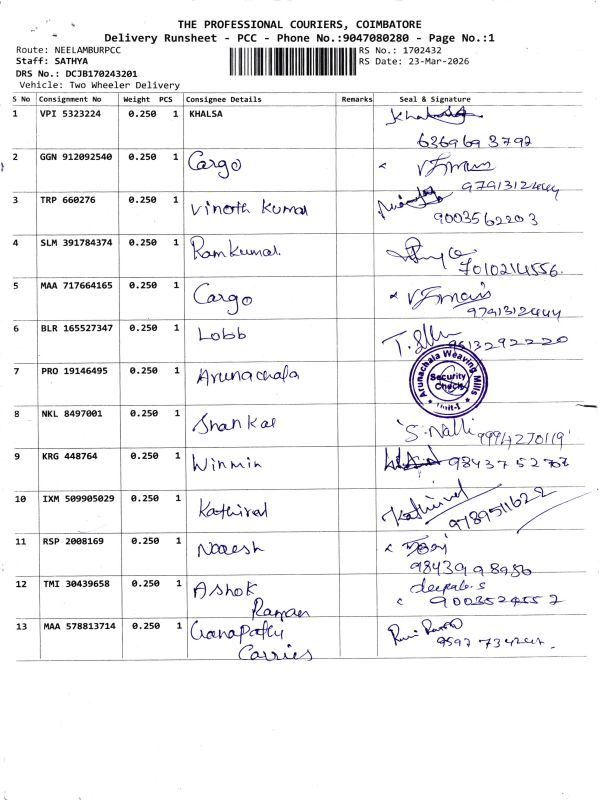 THE PROFESSIONAL COURIERS, COIMBATORE
Delivery Runsheet - PCC - Phone No.:9047080280 - Page No.:1
Route: NEELAMBURPCC
RS No.: 1702432
Staff: SATHYA
RS Date: 23-Mar-2026
DRS No.: DCJB170243201
Vehicle: Two Wheeler Delivery
S No Consignment No Weight PCS Consignee Details Remarks Seal & Signature
1 VPI 5323224 0.250 1 KHALSA
6369693792
2 GGN 912092540 0.250 1 Cargo
9791312444
3 TRP 660276 0.250 1 Vinoth Kumar
9003562203
4 SLM 391784374 0.250 1 Ramkumar
7010214556.
5 MAA 717664165 0.250 1 Cargo
9791312444
6 BLR 165527347 0.250 1 Lobb
9513292220
7 PRO 19146495 0.250 1 Arunachala
Arunachala Weaving Mills
Security
Check
Unit-I
8 NKL 8497001 0.250 1 Shankar
S. Nalli
9 KRG 448764 0.250 1 Winmin 9843752707
10 IXM 509905029 0.250 1 Kathirval Kathirvel
9789511622
11 RSP 2008169 0.250 1 Naresh
9843998986
12 TMI 30439658 0.250 1 Ashok deepak.s
Raman 9003524552
13 MAA 578813714 0.250 1 Ganapathy
Carries